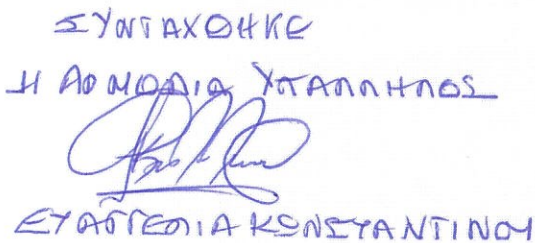 ΣΥΝΤΑΧΘΗΚΕ
Η ΑΡΜΟΔΙΑ ΥΠΑΛΛΗΛΟΣ
ΕΥΑΓΓΕΛΙΑ ΚΩΝΣΤΑΝΤΙΝΟΥ